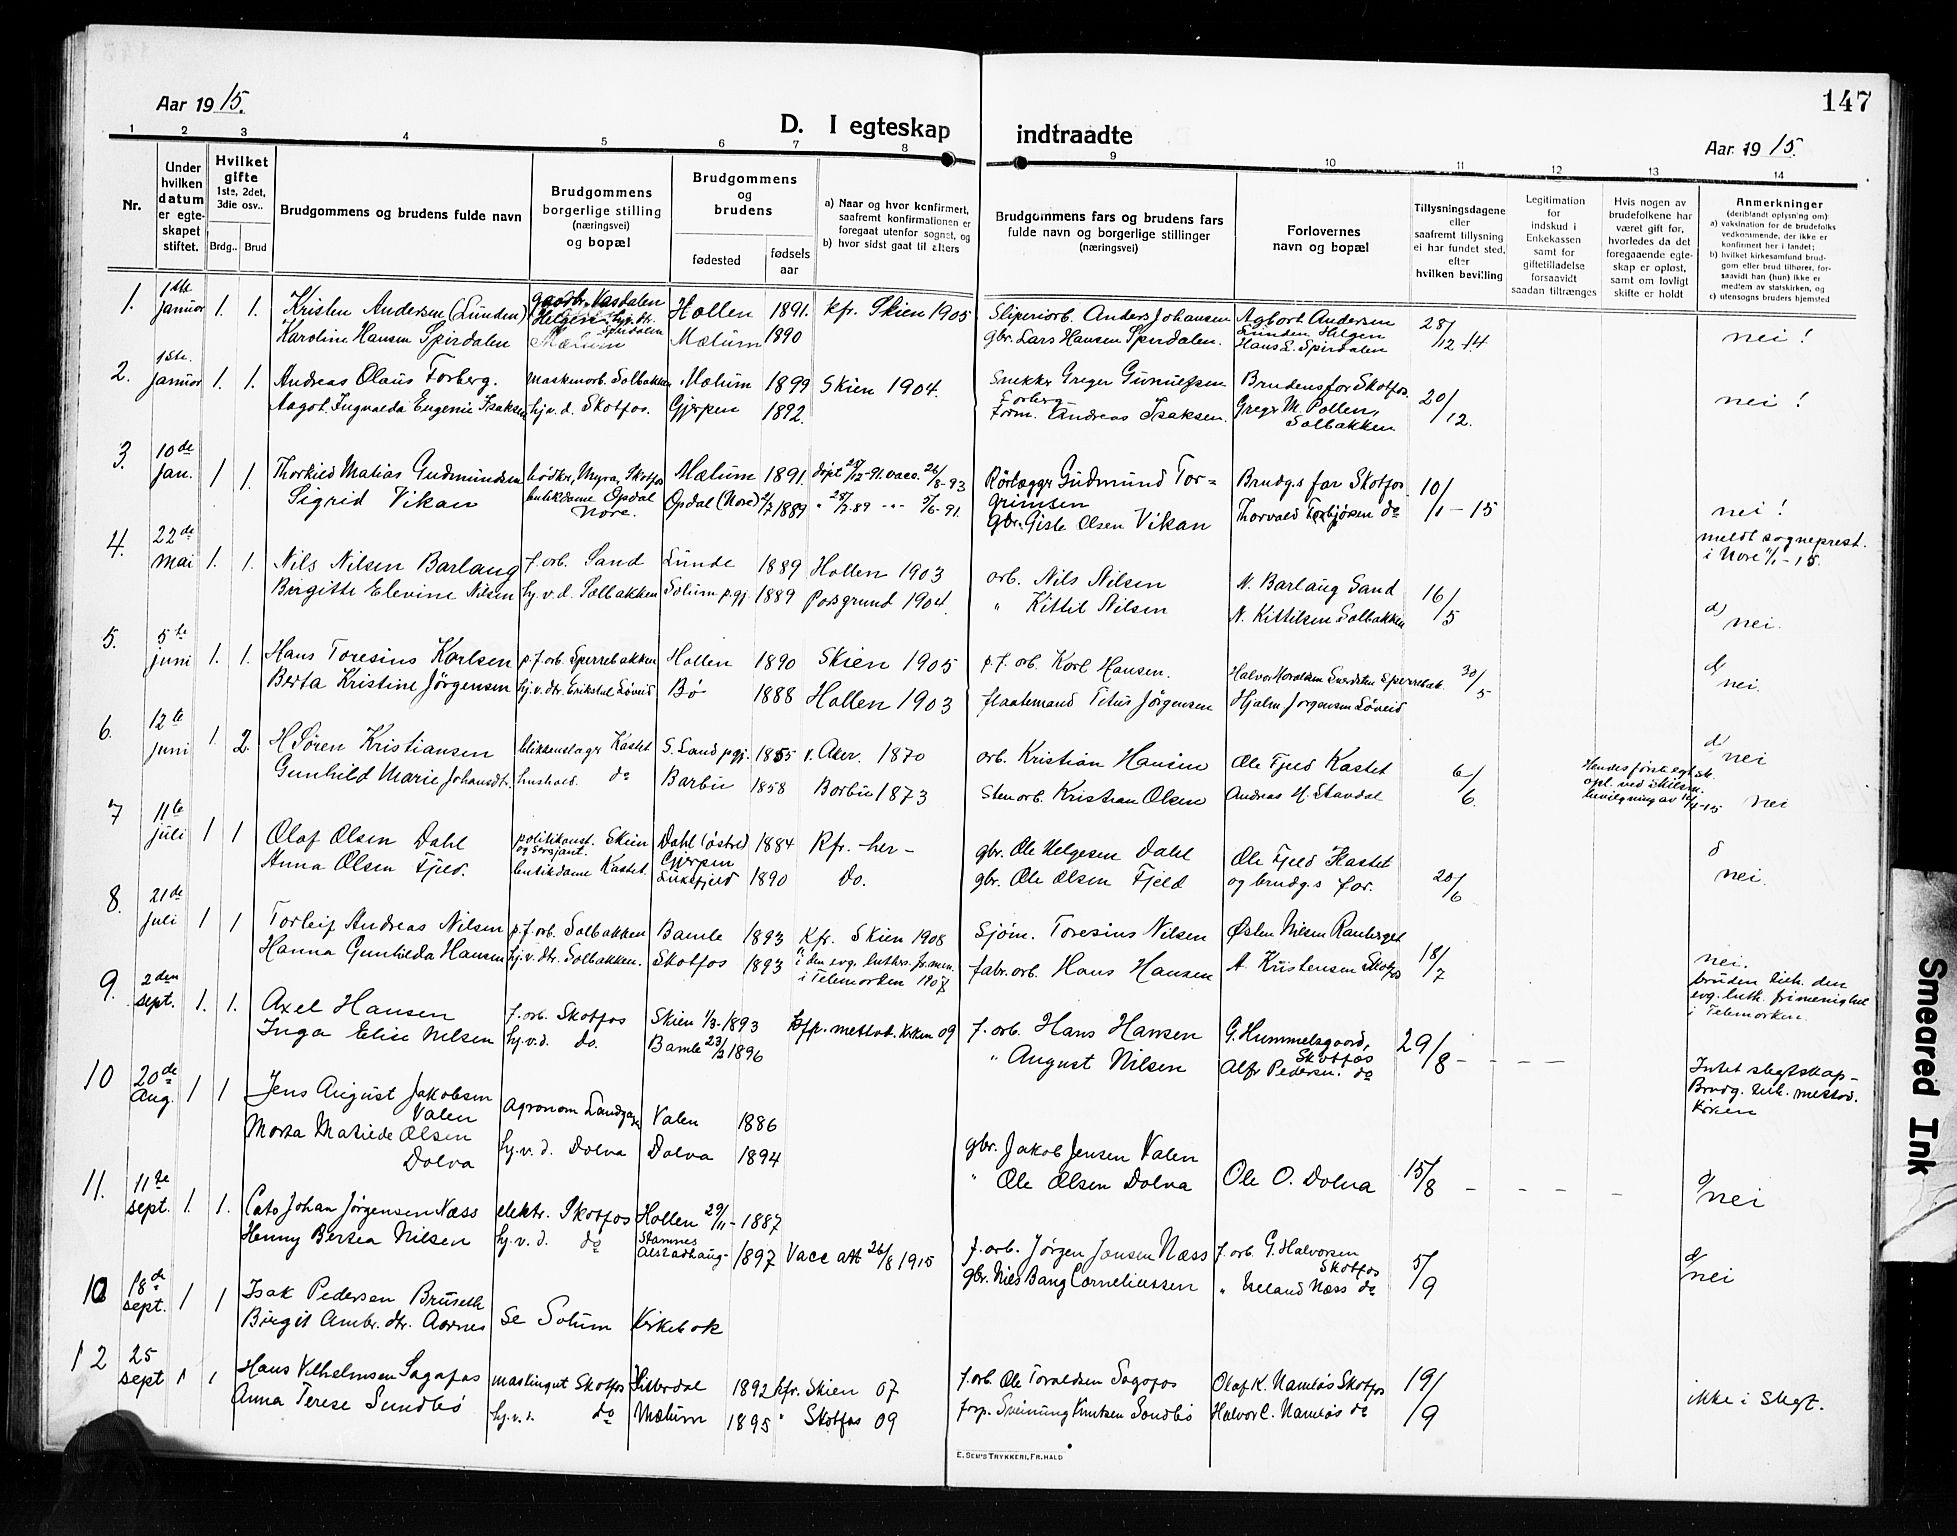 147
Aar 1915.
D. I egteskap indtraadte
Aar 1915.
1 2 3 4 5 6 7 8 9 10 11 12 13 14
Nr.
Under hvilken datum er egteskapet stiftet.
Hvilket gifte 1ste, 2det, 3die osv..
Brdg..
Brud
Brudgommens og brudens fulde navn
Brudgommens borgerlige stilling (næringsvei) og bopæl
Brudgommens og brudens
fødested
fødselsaar
a) Naar og hvor konfirmert, saafremt konfirmationen er foregaat utenfor sognet, og
b) hvor sidst gaat til alters
Brudgommens fars og brudens fars fulde navn og borgerlige stillinger (næringsvei)
Forlovernes navn og bopæl
Tillysningsdagene eller saafremt tillysning ei har fundet sted, efter hvilken bevilling
Legitimation for indskud i Enkekassen samt for giftetilladelse forsaavidt saadan tiltrænges
Hvis nogen av brudefolkene har været gift før, hvorledes da det foregaaende egteskap er opløst, samt om lovligt skifte er holdt
Anmerkninger (deriblandt oplysning om):
a) vaksination for de brudefolks vedkommende, der ikke er konfirmert her i landet;
b) hvilket kirkesamfund brudgom eller brud tilhører, forsaavidt han (hun) ikke er medlem av statskirken, og
c) utensogns bruders hjemsted
1. 1ste januar 1. 1. Kristen Andersen (Lunden) Hollen 1891. kfr. Skien 1905 Sliperiarb. Anders Johansen Andersen Lunden Helgen 28/12 14 nei!
Karoline Hansen Spirdalen Mælum 1890 gbr. Lars Hansen Spirdalen. Hans L. Spirdalen
2. 1ste. januar 1. 1. Andreas Olaus Forberg. Maskinarb. Solbakken Mælum 1899 Skien 1904. Snekker Greger Forberg Brudens far Skotfos. 20/12. nei!
Aagot Ingvalda Eugenie Isaksen hj.v.d. Skotfos. Gjerpen 1892. Form. Andreas Isaksen. Greger M. Pollen, Solbakken
3. 10de jan. 1 1. Thorkild Matias Gudmundsen bødker, Myra, Skotfos Mælum 1891. døpt 28/12-91. vacc. 26/8-93 Rörlægger Gudmund Torgrimsen Brudg.s far Skotfos. 10/1-15 nei!
Sigrid Vikan butikdame Opdal Nore. Opdal (Nore) 1889 Gbr. Giste Olsen Vikan Thorvald Torbjörsen do meldt sogneprest. i Nore
4. 22de mai 1. 1. Nils Nilsen Barlaug f. arb. Sand Lunde 1889 Hollen 1903 arb. Nils Nilsen N. Barlaug Sand 16/5
Birgitte Elevine Nilsen hj.v.d. Solbakken Solum p.gj. 1889 Porsgrund 1904. " Kittil Nilsen N. Kittilsen Solbakken nei.
5. 5te juni 1. 1. Hans Toresius Karlsen p.f. arb. Sperrebakken Hollen 1890 Skien 1905 p.f. arb. Karl Hansen. 30/5
Berta Kristine Jörgensen hj.v.dtr. Løveid Bø 1888 Hollen 1903 flaatemand Titus Jörgensen Hjalm. Jørgensen Løveid nei.
6. 12te juni 1. 2. H Søren Kristiansen blikkenslager Kastet S. Land p.gj. 1855 v. Aker. 1870 arb. Kristian Hansen Ole Fjeld Kastet 6/6. nei
Gunhild Marie Johansdtr. hushold. do Barbu 1858 Barbu 1873 Stenarb. Kristian Olsen Andreas H. Standal nei
7 11te juli 1 1 Olaf Olsen Dahl politikonst. og sersjant. Skien Dahl (østre) Gjerpen 1884 Kfr. -her- gbr. Ole Helgesen Dahl Ole Fjeld Kastet 20/6
Anna Olsen Fjeld. butikdame Kastet. Luksefjeld 1890 Do. gbr. Ole Olsen Fjeld og brudg.s far. nei.
8. 21de juli 1 1 Torleif Andreas Nilsen p.f. arb. Solbakken Bamle 1893 Kfr. Skien 1908 Sjöm. Toresius Nilsen Østen Nilsen Ramberget 18/7 nei.
Hanna Gunhilda Hansen hj.v.dtr. Solbakken. Skotfos 1893 i den evg. luthrs. fr.men. i Telemarken fabr. arb. Hans Hansen A. Kristensen Skotfos bruden tilh. den evg. luth. frimenighet i Telemarken.
9. 2den sept. 1. 1. Axel Hansen f. arb. Skotfos Skien 1/3-1893 metod. kirken 09 f. arb. Hans Hansen G. Hummelsgaard, Skotfos 29/8 - - - - Intet slegtskap-
Inga Elise Nilsen hj.v.d. do. Bamle 1896 " August Nilsen Alfr Pedersen. do Brudg. tilh. metod. kirken
10 20de Aug. 1 1 Jens August Jakobsen Valen Agronom Valen 1886 gbr. Jakob Jensen Valen
Marta Matilde Olsen Dolva hj.v.d. Dolva Dolva 1894 " Ole Olsen Dolva Ole O. Dolva 15/8 - - - - nei
11. 11te sept. 1. 1. Cato Johan Jørgensen Næss elektr. Skotfos Hollen 29/11-1887 f. arb. Jørgen Jansen Næss f. arb. G. Halvorsen Skotfos 5/9
Henny Bertea Nilsen hj.v.d. do Stamnes Alstadhaug 1897 Vacc att 26/8 1915 gbr. Nils Bang Corneliussen " Næss do nei
10 18de sept. 1 1 Isak Pedersen Bruseth Se Solum Kirkebok
Birgit Ambr. dtr. Aarnes
12 25 sept 1 1 Hans Vilhelmsen Sagafos Skotfos Hitterdal 1892 kfr. Skien 07 f. arb. Ole Toraldsen Sagafos Olaf K. Namløs Skotfos 19/9 ikke i Slegt.
Anna Terese Sundbö hj.v.d. do Mælum 1895 " Skotfos 09 Sveinung Knutsen Sundbö Halvor C. Namløs do
E. SEM'S TRYKKERI, FR.HALD
Smeared Ink